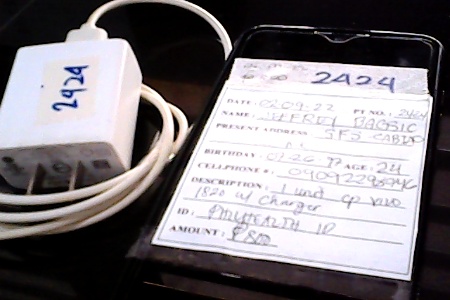 2424
2424
DATE: 0209-22 PT NO.: 2424
NAME: JEFFREY
PRESENT ADDRESS SFS-
BIRTHDAY: 07-26-97 AGE: 24
CELLPHONE #:
DESCRIPTION: 1 unit cp vivo
1820 w/ charger
ID: PHILHEALTH ID
AMOUNT: